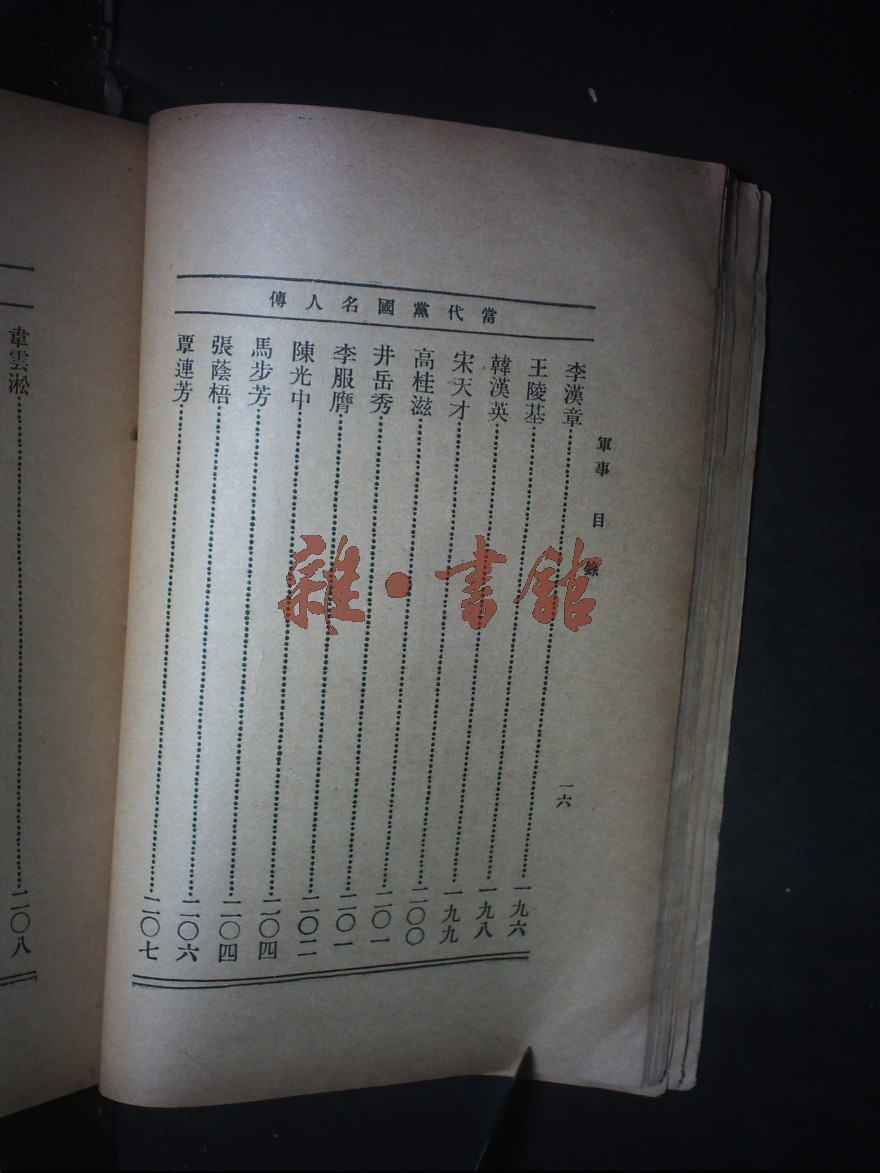 當代黨國名人傳
軍事目錄 一六
李漢章……一九六
王陵基……一九八
韓漢英……一九九
宋天才……二〇〇
高桂滋……二〇一
井岳秀……二〇一
李服膺……二〇二
陳光中……二〇四
馬步芳……二〇四
張蔭梧……二〇六
覃連芳……二〇七
韋雲淞……二〇八
雜·書館